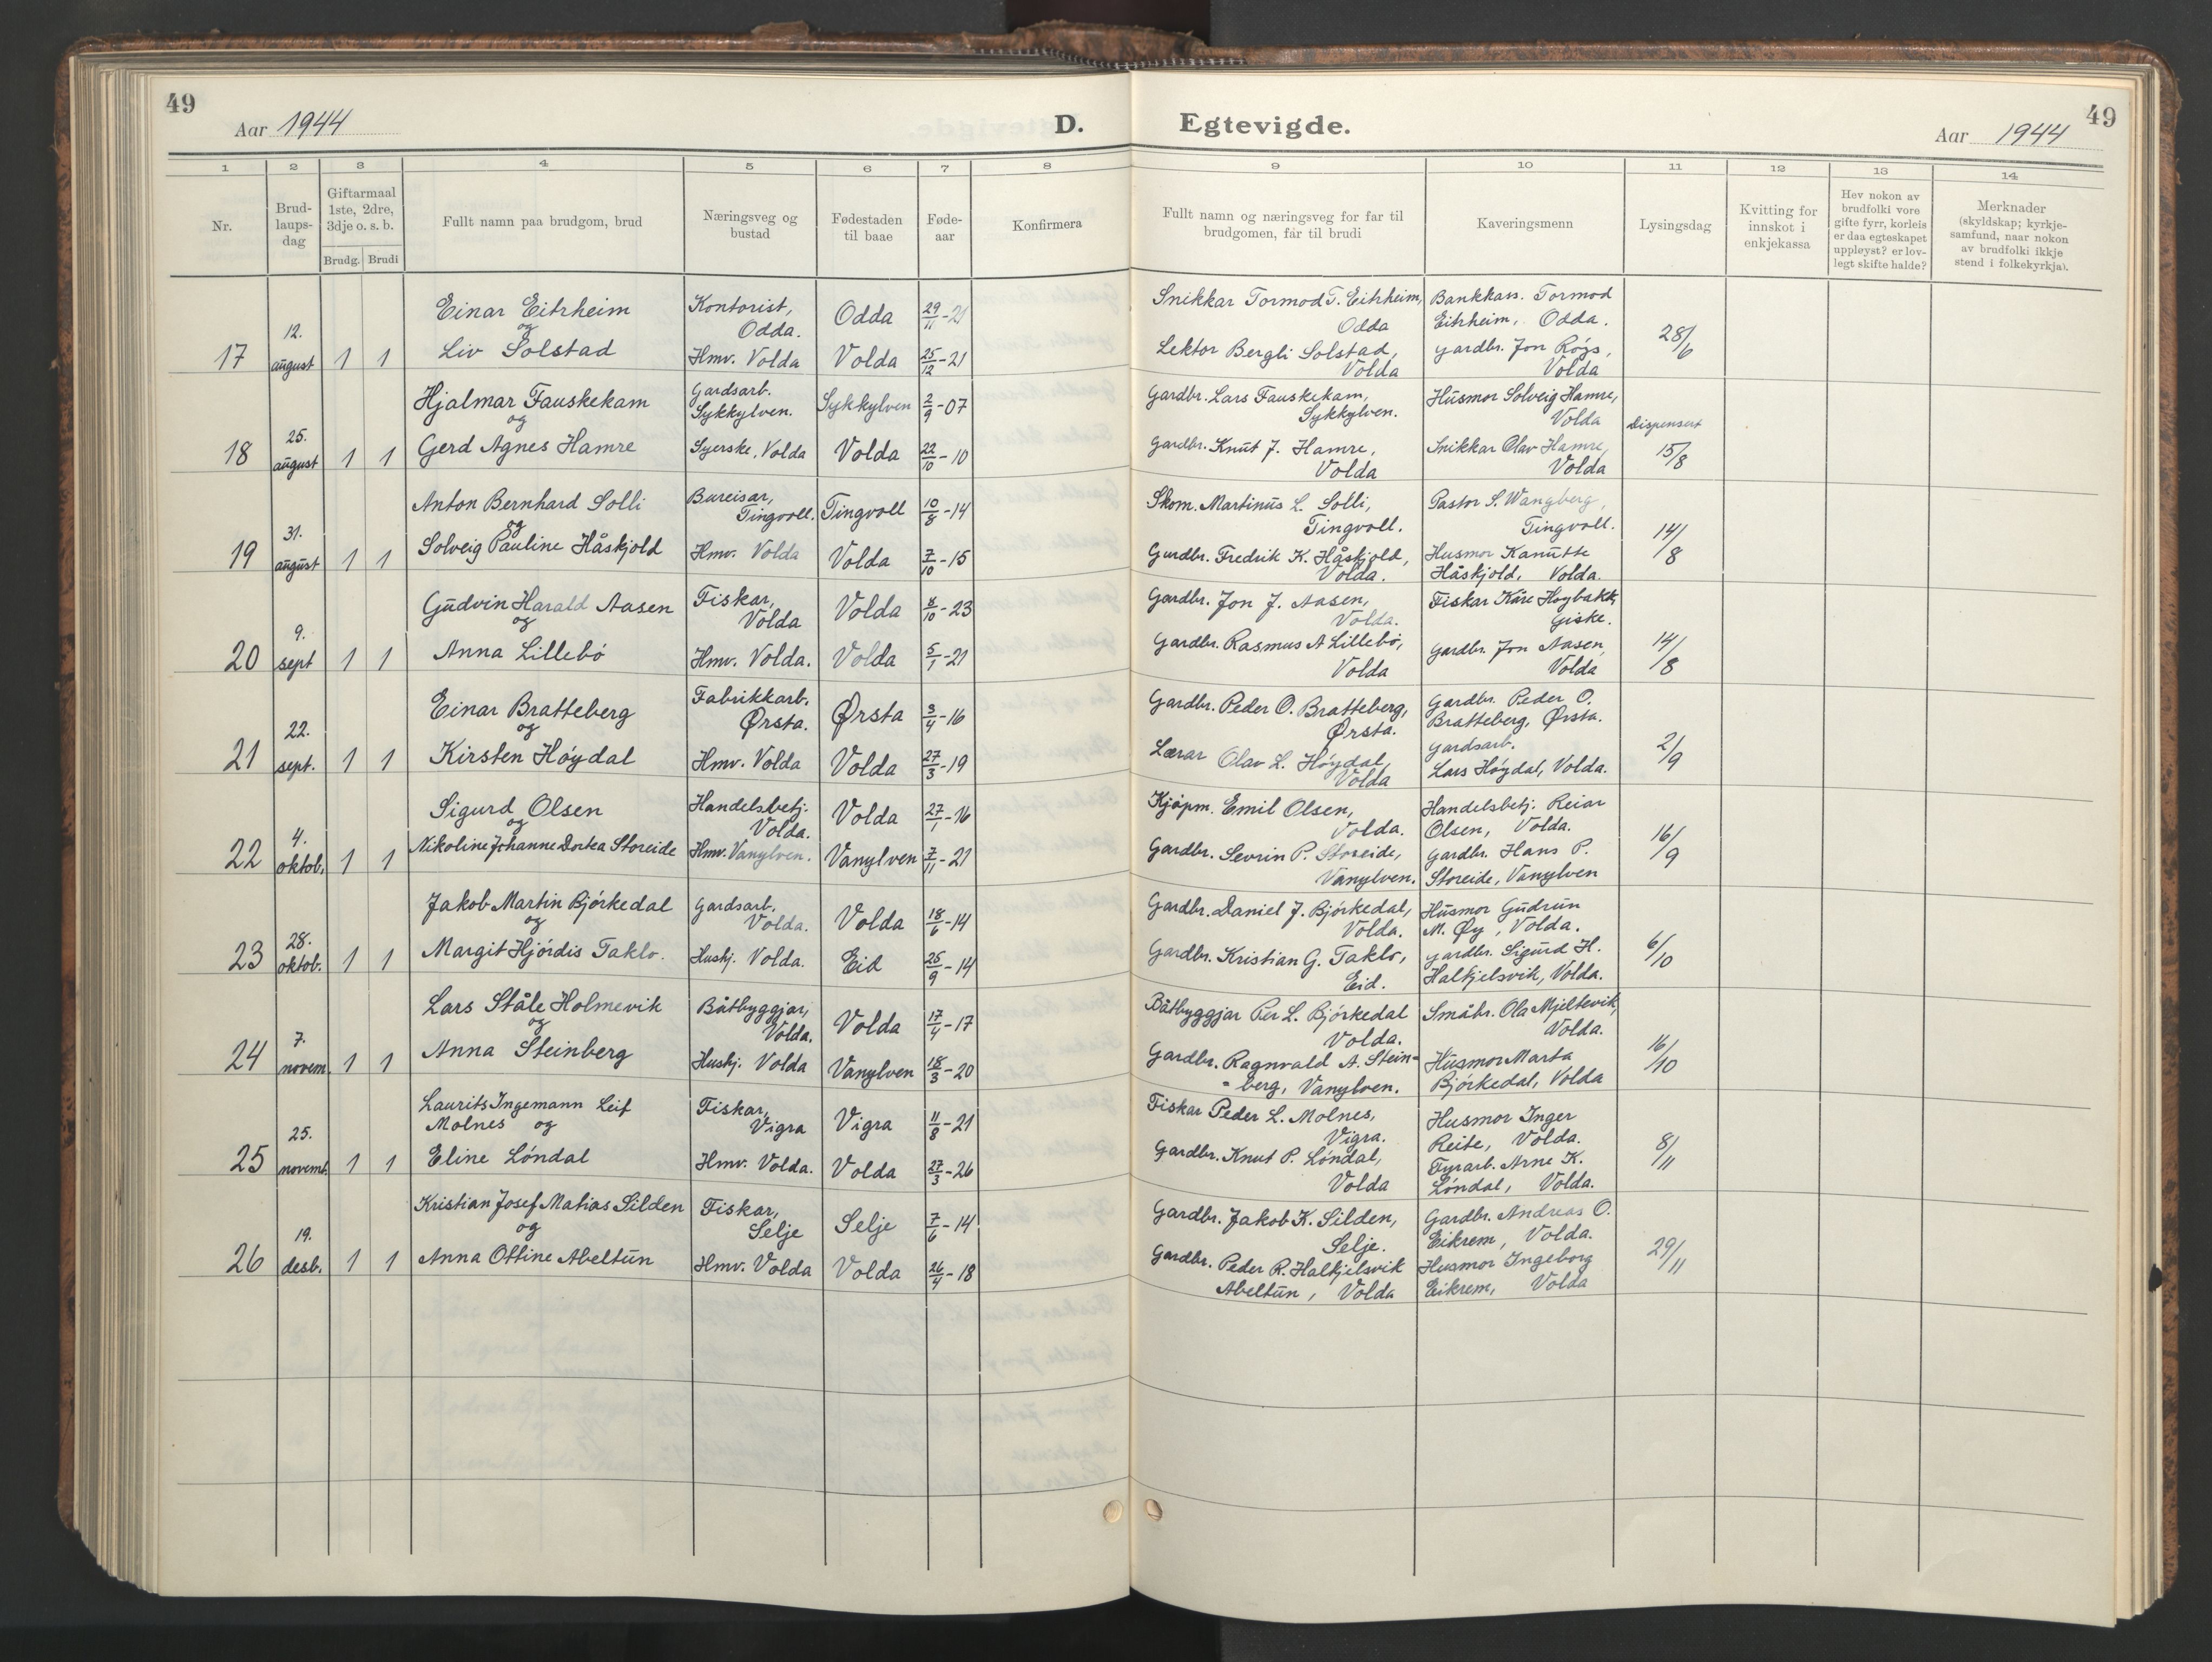 49
Aar 1944
D.
1 2 3 4 5 6 7 8
Nr.
Brud-
laups-
dag
Giftarmaal
1ste, 2dre,
3dje o. s. b.
Brudg. Brudi
Fullt namn paa brudgom, brud
Næringsveg og
bustad
Fødestaden
til baae
Føde-
aar
Konfirmera
17
12.
august
1 1
Einar Eitrheim
og
Liv Solstad
Kontorist,
Odda.
Hmv. Volda
Odda
Volda
29/11-21
25/12-21
18
25.
august
1 1
Hjalmar Fauskekam
og
Gerd Agnes Hamre
Gardsarb.
Sykkylven.
Syerske, Volda
Sykkylven
Volda
2/9-07
22/10-10
19
31.
august
1 1
Anton Bernhard Solli
og
Solveig Pauline Håskjold
Bureisar,
Tingvoll.
Hmv. Volda
Tingvoll
Volda
10/8-14
7/10-15
20
9.
sept
1 1
Gudvin Harald Aasen
og
Anna Lillebø
Fiskar,
Volda
Hmv. Volda.
Volda
Volda
4/10-23
5/1-21
21
22.
sept.
1 1
Einar Bratteberg
og
Kirsten Høydal
Fabrikkarb.
Ørsta.
Hmv. Volda
Ørsta
Volda
3/4-16
27/3-19
22
4.
oktob.
1 1
Sigurd Olsen
og
Nikoline Johanne Dorkea Storeide
Handelsbetj.
Volda.
Hmv. Vanylven.
Volda
Vanylven
27/1-16
7/11-21
23
28.
oktob.
1 1
Jakob Martin Bjørkedal
og
Margit Hjørdis Taklo.
Gardsarb.
Volda.
Hushj. Volda.
Volda
Eid
18/6-14
25/9-14
24
7.
novem.
1 1
Lars Ståle Holmevik
og
Anna Steinberg
Båtbyggjar,
Volda.
Hushj. Volda
Volda
Vanylven
17/4-17
18/3-20
25
25.
novemb.
1 1
Laurits Ingemann Leif
Molnes og
Eline Løndal
Fiskar,
Vigra
Hmv. Volda.
Vigra
Volda
11/8-21
27/3-26
26
19.
desb.
1 1
Kristian Josef Matias Silden
og
Anna Ottine Abeltun
Fiskar,
Selje
Hmv. Volda
Selje
Volda
7/6-14
26/4-18
49
Egtevigde.
Aar 1944
9 10 11 12 13 14
Fullt namn og næringsveg for far til
brudgomen, får til brudi
Kaveringsmenn
Lysingsdag
Kvitting for
innskot i
enkjekassa
Hev nokon av
brudfolki vore
gifte fyrr, korleis
er daa egteskapet
uppløyst? er lov-
legt skifte halde?
Merknader
(skyldskap; kyrkje-
samfund, naar nokon
av brudfolki ikkje
stend i folkekyrkja).
Snikkar Tormod T. Eitrheim,
Odda
Lektor Bergli Solstad,
Volda
Bankkass. Tormod
Eitrheim, Odda.
gardbr. Jon Røys,
Volda
28/6
Gardbr. Lars Fauskekam,
Sykkylven.
Gardbr. Knut J. Hamre,
Volda
Husmor Solveig Hamre,
Volda
Snikkar Olav Hamre,
Volda
Dispensert
15/8
Skom. Martinus L. Solli,
Tingvoll.
Gardbr. Fredrik K. Håskjold,
Volda.
Pastor S. Wangberg,
Tingvoll.
Husmor Kanutte
Håskjold, Volda.
14/8
Gardbr. Jon J. Aasen,
Volda.
Gardbr. Rasmus A Lillebø,
Volda
Fiskar Kåre Høybakk,
Giske.
gardbr. Jon Aasen,
Volda
14/8
Gardbr. Peder O. Bratteberg,
Ørsta.
Lærar Olav L. Høydal,
Volda
Gardbr. Peder O.
Bratteberg, Ørsta.
Gardsarb.
Lars Høydal, Volda.
2/9
Kjøpm. Emil Olsen,
Volda.
Gardbr. Sevrin P. Storeide,
Vanylven.
Handelsbetj. Reiar
Olsen, Volda.
gardbr. Hans P.
Storeide, Vanylven
16/9
Gardbr. Daniel J. Bjørkedal,
Volda.
Gardbr. Kristian G. Taklo,
Eid.
Husmor Gudrun
M. Øy, Volda.
gardbr. Sigurd H.
Halkjelsvik, Volda.
6/10
Båtbyggjar Per L. Bjørkedal
Volda.
Gardbr. Ragnvald A. Stein-
berg, Vanylven.
Småbr. Ola Mjeltevik,
Volda.
Husmor Marta
Bjørkedal, Volda
16/10
Fiskar Peder L. Molnes,
Vigra.
Gardbr. Knut P. Løndal,
Volda
Husmor Inger
Reite, Volda.
Fyrarb. Arne K.
Løndal, Volda.
8/11
Gardbr. Jakob K. Silden,
Selje.
Gardbr. Peder R. Halkjelsvik
Abeltun, Volda
Gardbr. Andreas O.
Eikrem, Volda.
Husmor Ingeborg
Eikrem, Volda
29/11